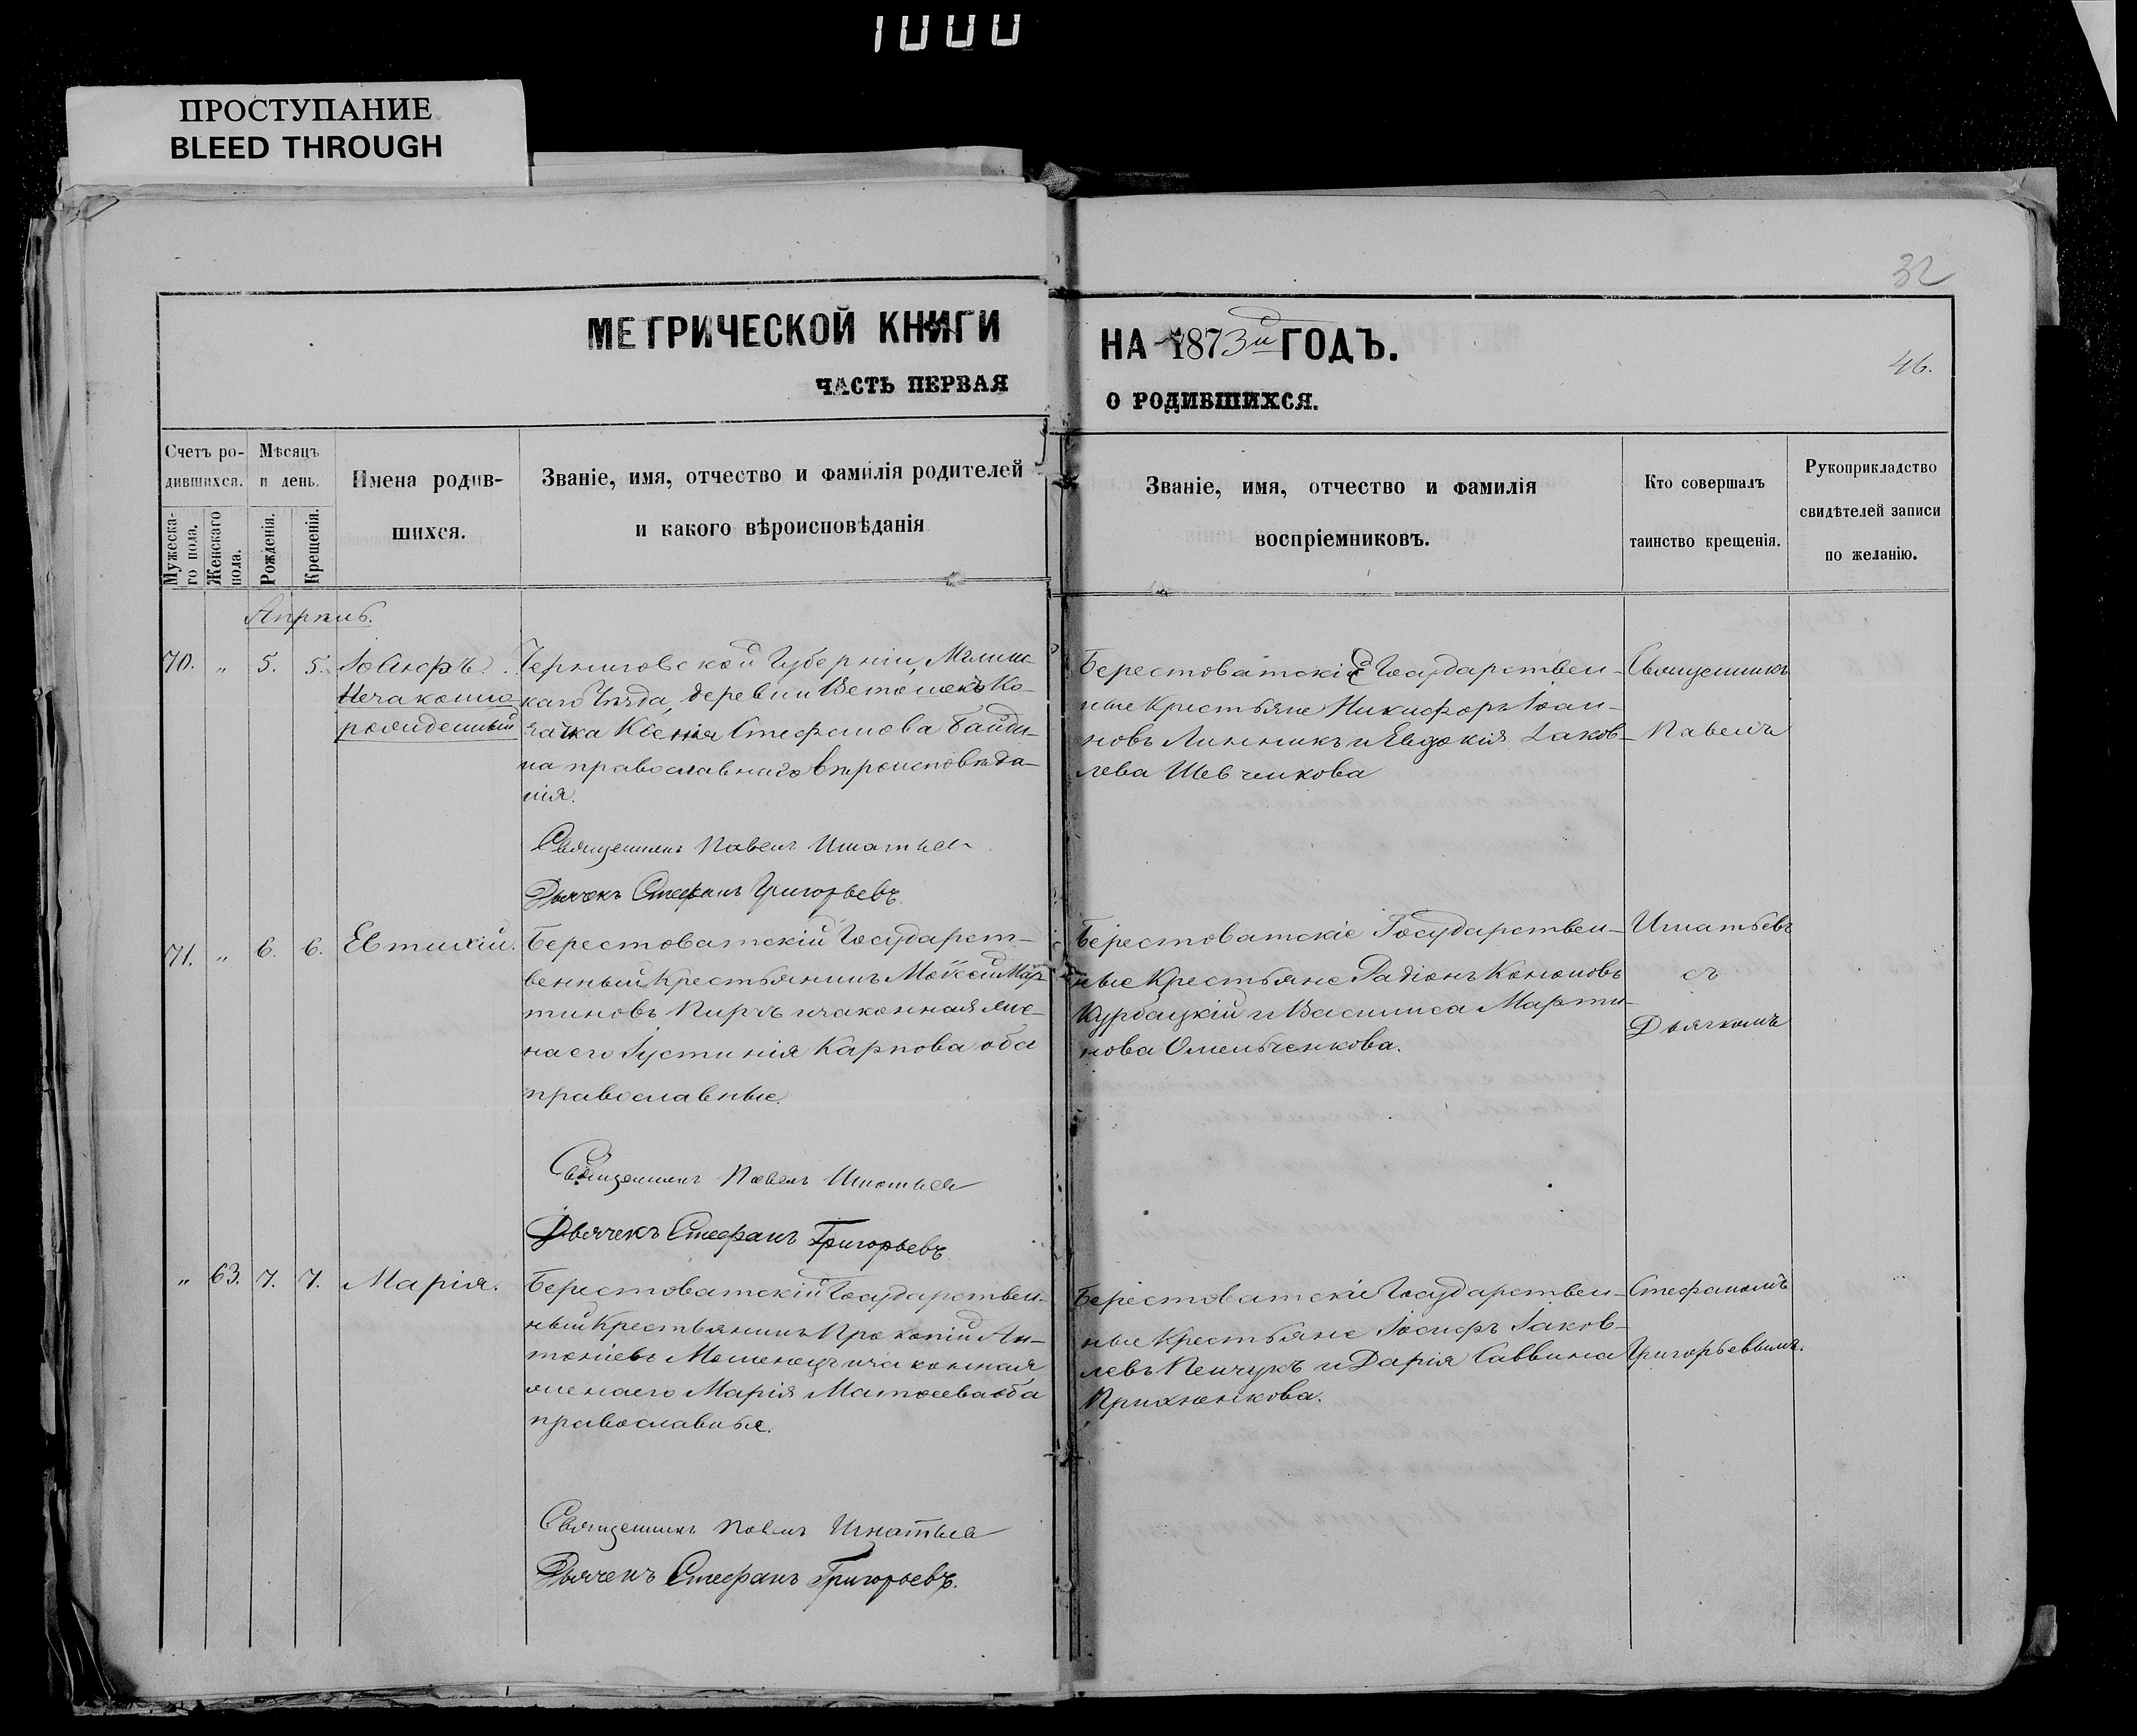 1000
ПРОСТУПАНИЕ
BLEED THROUGH
32
МЕТРИЧЕСКОЙ КНИГИ
НА 1873й ГОДЪ.
46.
ЧАСТЬ ПЕРВАЯ
О РОДИВШИХСЯ.
Счетъ ро-
дившихся.
Мужеска-
го пола.
Женскаго
пола.
Мѣсяцъ
и день.
Рожденія.
Крещенія.
Имена родив-
шихся.
Званіе, имя, отчество и фамилія родителей
и какого вѣроисповѣданія
Званіе, имя, отчество и фамилія
воспріемниковъ.
Кто совершалъ
таинство крещенія.
Рукоприкладство
свидѣтелей записи
по желанію.
Апрѣль.
70. „ 5. 5. Іосифъ.
Незаконно
рожденный
Черниговской Губерніи, Мглинс-
каго Уѣзда, деревни Ко-
зачка Ксенія Стефанова Байди-
на православнаго вѣроисповѣда-
нія.
Священникъ Павелъ Игнатьев
Дьячекъ Стефанъ Григорьевъ.
Берестоватскіе Государствен-
ные Крестьяне Никифоръ Іоан-
новъ Линникъ и Евдокія Іаков-
лева Шевченкова
Священникъ
Павелъ
71. „ 6. 6. Евтихій.
Берестоватскій Государст-
венный Крестьянинъ Моѵсей Мар-
тиновъ Пирчъ и законная же-
на его Іустинія Карпова оба
православные.
Священникъ Павелъ Игнатьев
Дьячекъ Стефанъ Григорьевъ.
Берестоватскіе Государствен-
ные Крестьяне Радіонъ Кононовъ
Курбацкій и Василиса Марти-
нова Омельченкова.
Игнатьевъ
съ
Дьячкомъ
„ 63. 7. 7. Марія.
Берестоватскій Государствен-
ный Крестьянинъ Прокопій Ан-
тоніевъ и законная
жена его Марія Матѳеева оба
православные.
Священникъ Павелъ Игнатьев
Дьячекъ Стефанъ Григорьевъ.
Берестоватскіе Государствен-
ные Крестьяне Іосифъ Іаков-
левъ Пенчукъ и Дарія Саввина
Прихненкова.
Стефаномъ
Григорьевымъ.